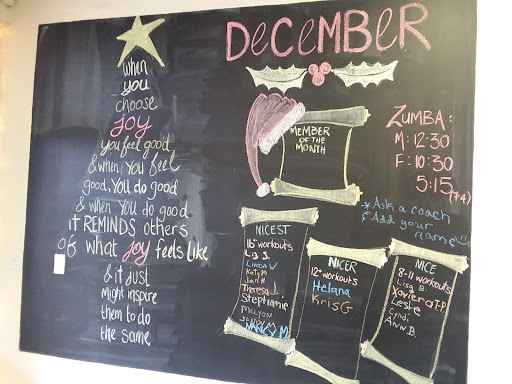 DECEMBER
when
you
choose
joy
you feel good
& when you feel
good, you do good
& when you do good
it REMINDS others
of what joy feels like
& it just
might inspire
them to do
the same
MEMBER
OF THE
MONTH
ZUMBA:
M: 12:30
F: 10:30
5:15
*Ask a coach
& Add your
name
NICEST
16+ workouts
Lis S.
Linda W
Katy M
Jan M
Theresa J.
Stephanie
Melyon
NANCY M.
NICER
12+ workouts
Helana
Kris G
NICE
8-11 workouts
Lisa B
Xavier
Leslie
Cyndi
ANN B.